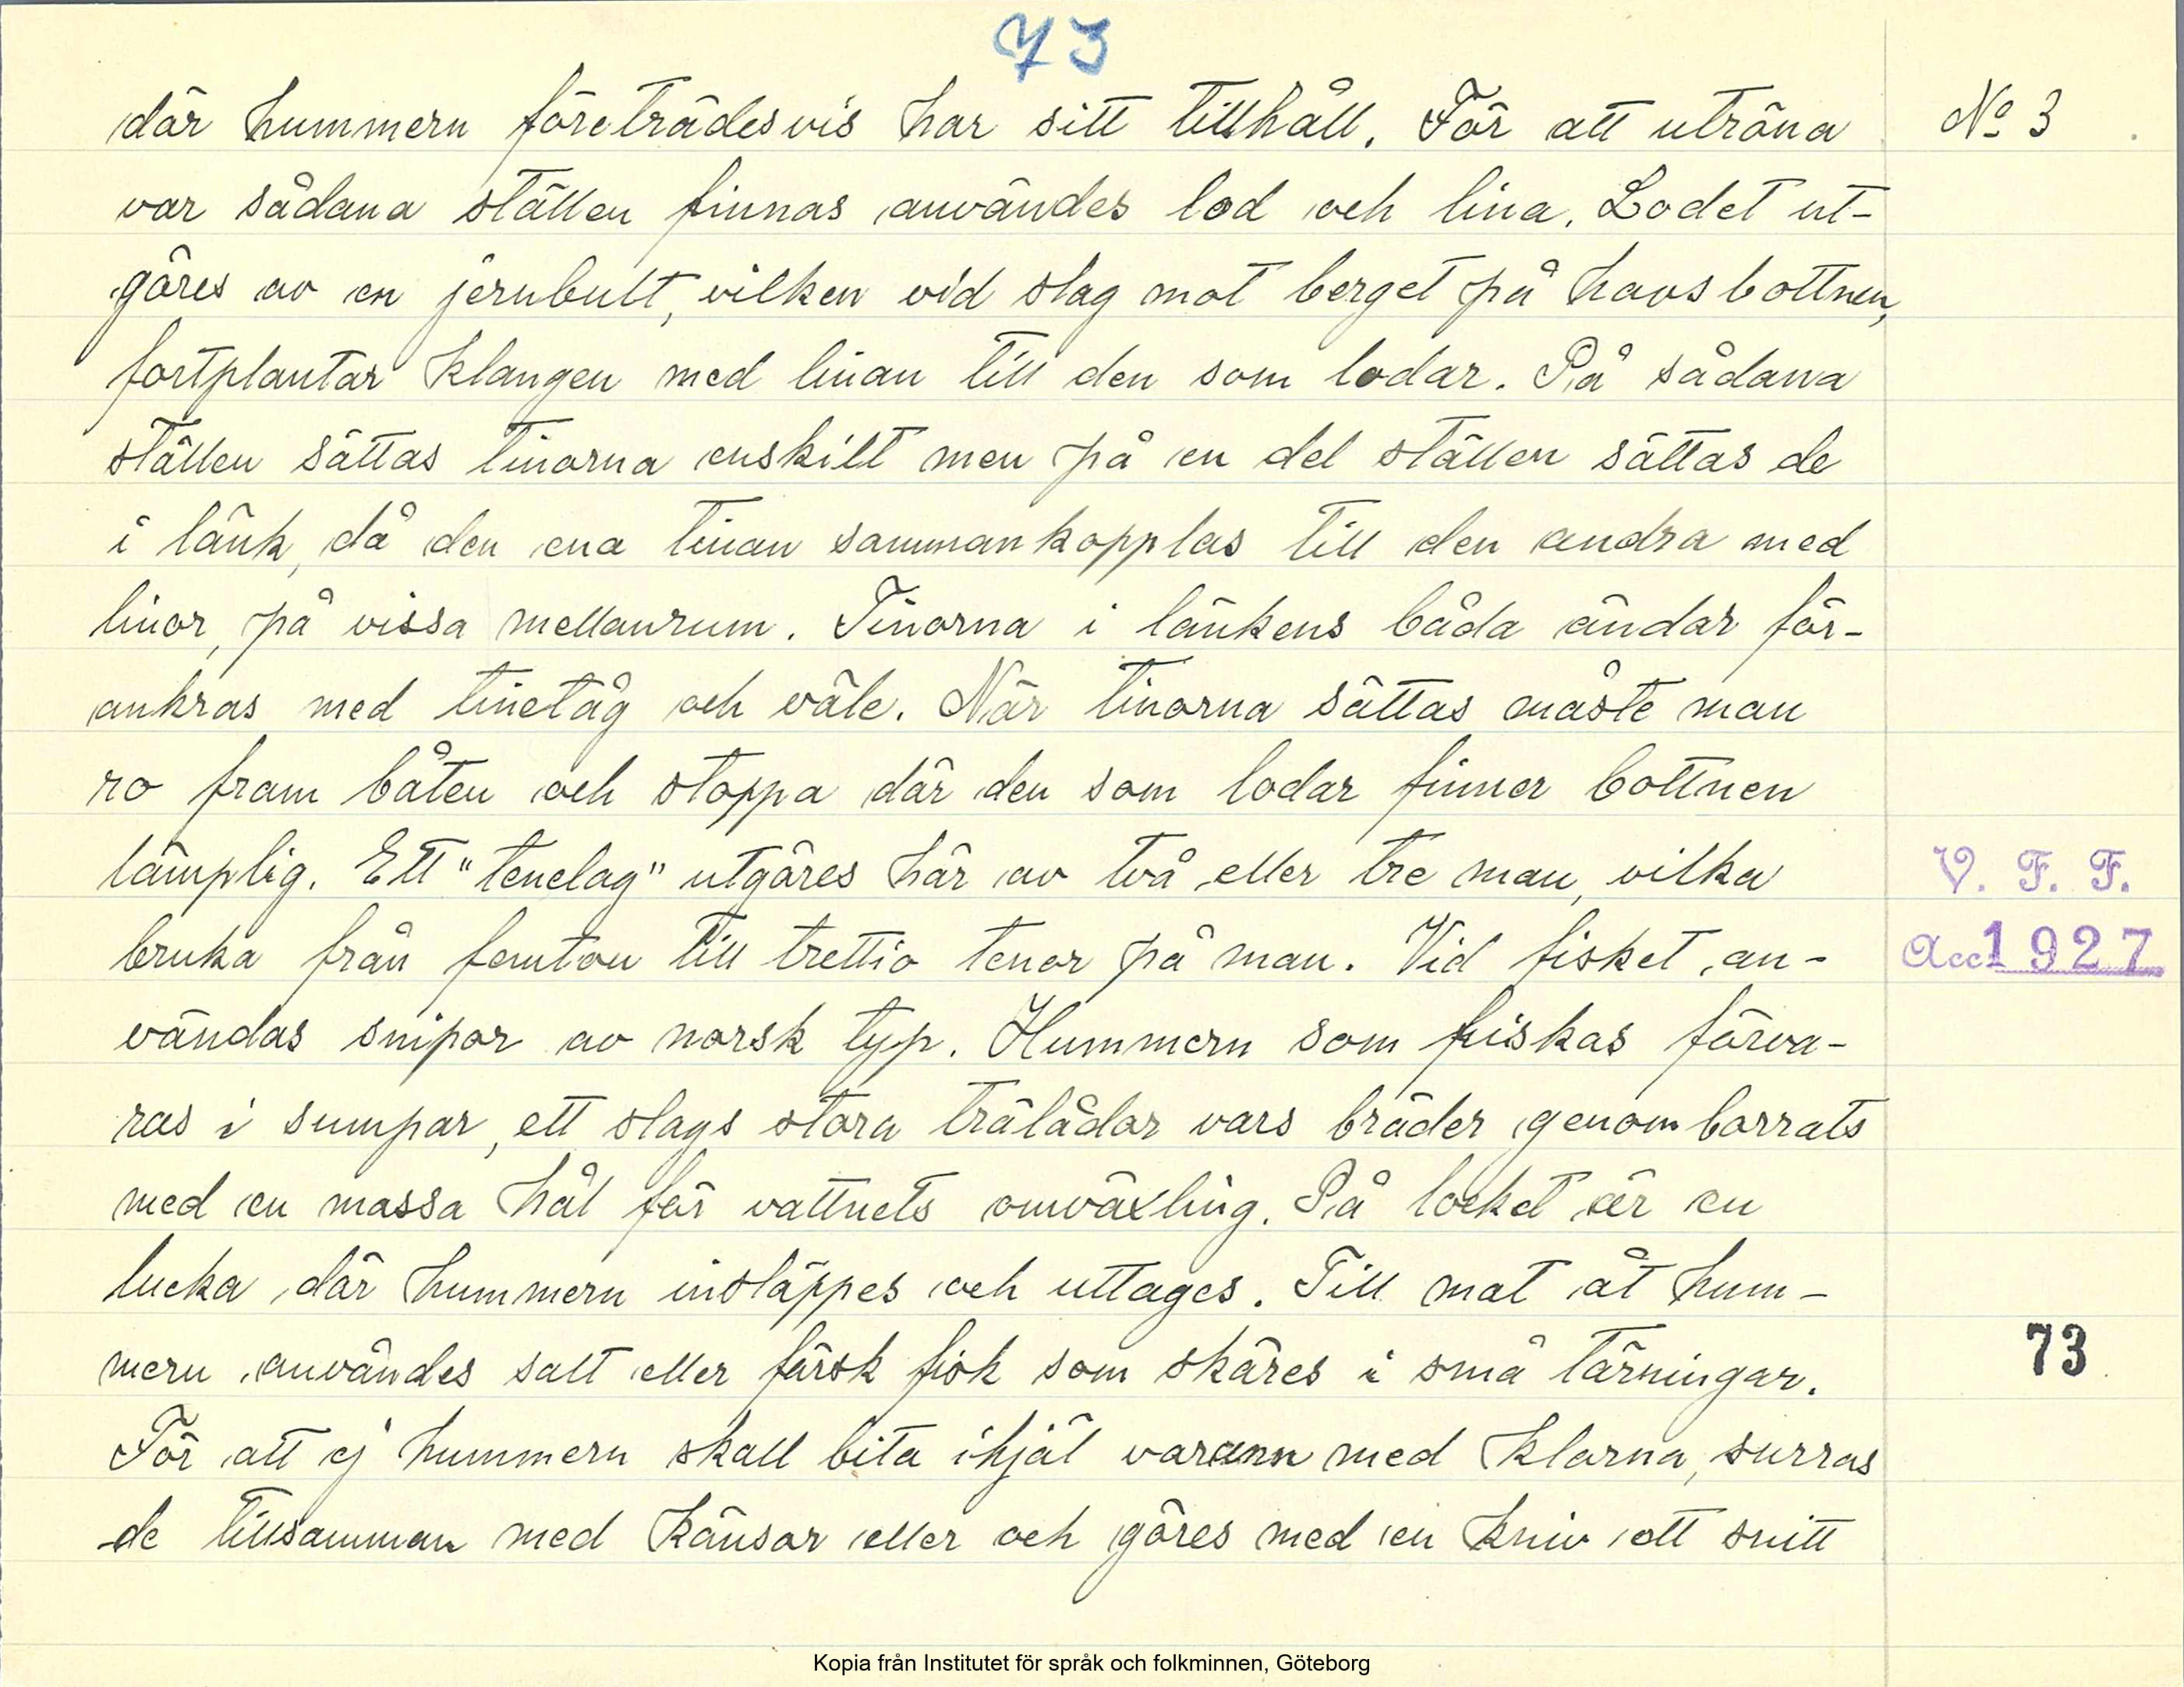 73
där hummern företrädesvis har sitt tillhåll. För att utröna
No 3
var sådana ställen finnas användes lod och lina. Lodet ut-
göres av en jernbult, vilken vid slag mot berget på havsbottnen,
fortplantar klangen med linan till den som lodar. På sådana
ställen sättas tinorna enskilt men på en del ställen sättas de
i länk, då den ena tinan sammankopplas till den andra med
linor, på vissa mellanrum. Tinorna i länkens båda ändar för-
ankras med tinetåg och våle. När tinorna sättas måste man
ro fram båten och stoppa där den som lodar finner bottnen
lämplig. Ett "tenelag" utgöres här av två eller tre man, vilka
V. F. F.
bruka från femton till trettio tenor på man. Vid fisket an-
Acc 1927
vändas snipor av norsk typ. Hummern som fiskas förva-
ras i sumpar, ett slags stora trälådor vars bräder genomborrats
med en massa hål för vattnets omväxling. På locket är en
lucka där hummern insläppes och uttages. Till mat åt hum-
mern användes salt eller färsk fisk som skäres i små tärningar.
73
För att ej hummern skall bita ihjäl varann med klorna, surras
de tillsamman med känsor eller och göres med en kniv ett snitt
Kopia från Institutet för språk och folkminnen, Göteborg